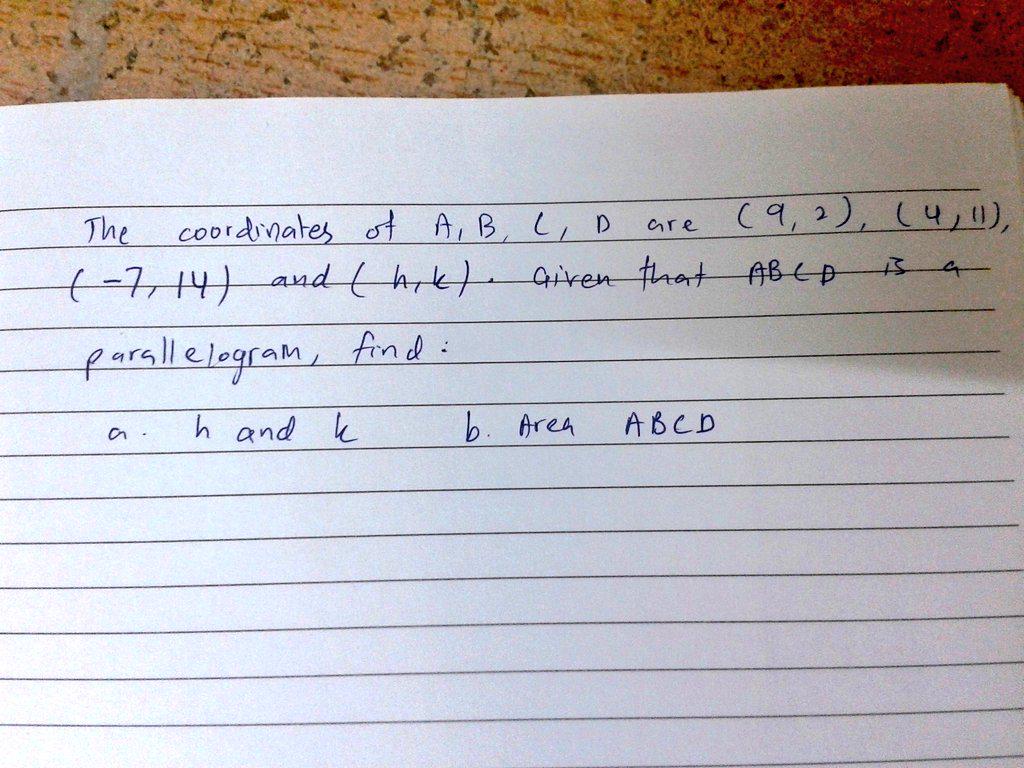 The coordinates of A, B, C, D are (9,2), (4,11),
(-7,14) and (h,k). Given that ABCD is a
parallelogram, find:
a. h and k b. Area ABCD